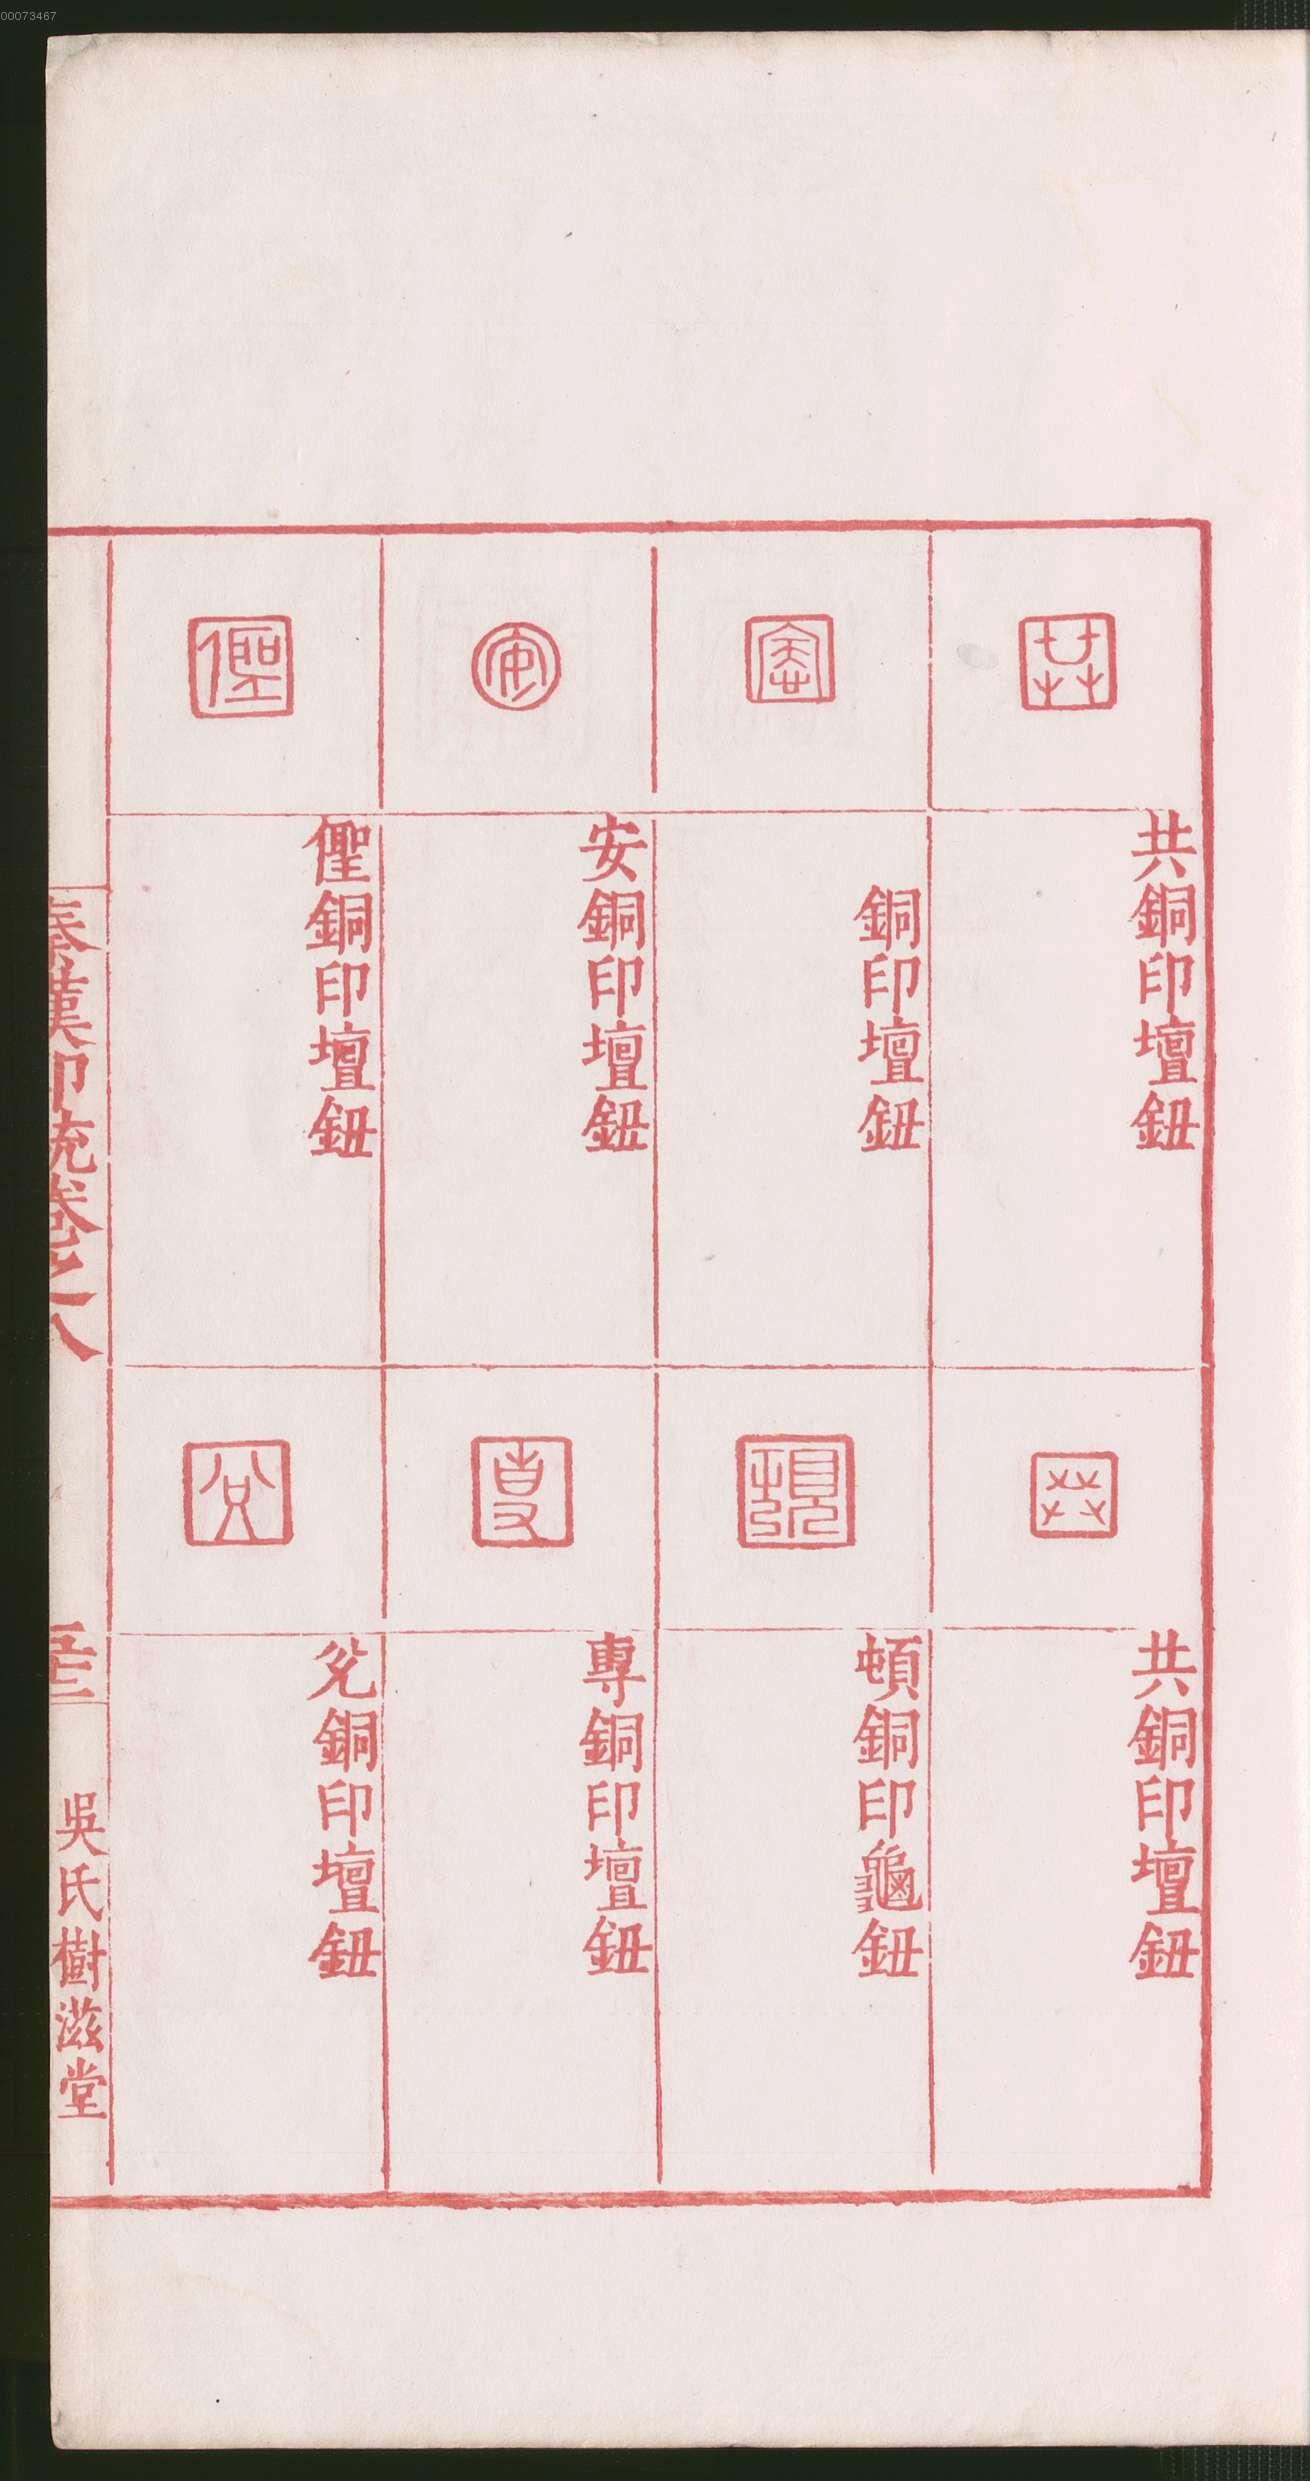 00073467
共銅印壇鈕
銅印壇鈕
安銅印壇鈕
㒬銅印壇鈕
共銅印壇鈕
頓銅印龜鈕
專銅印壇鈕
兊銅印壇鈕
秦漢印統卷之八
吳氏樹滋堂